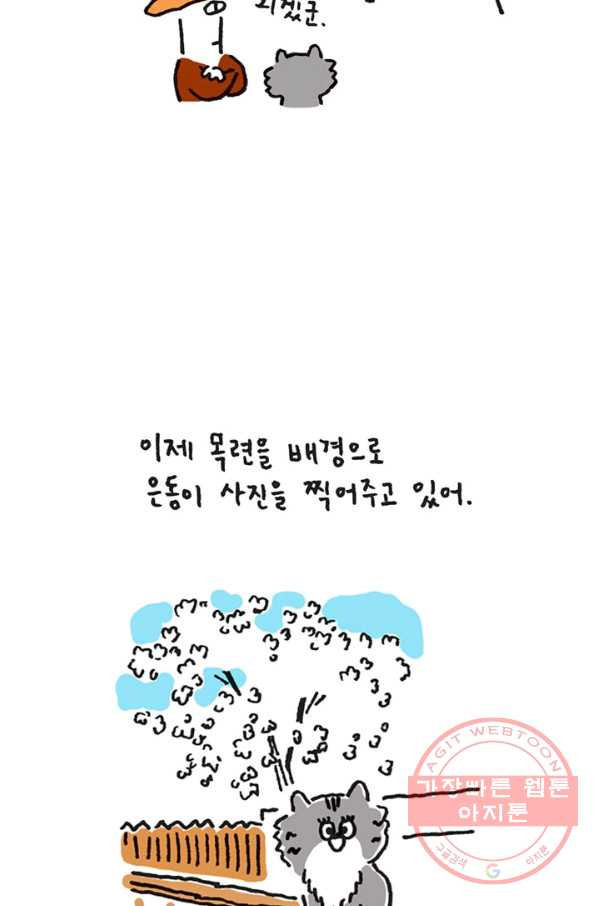 되겠군.
이제 목련을 배경으로
은동이 사진을 찍어주고 있어.
AGIT WEBTOON
가장빠른 웹툰
아지툰
구글검색
G
아지툰